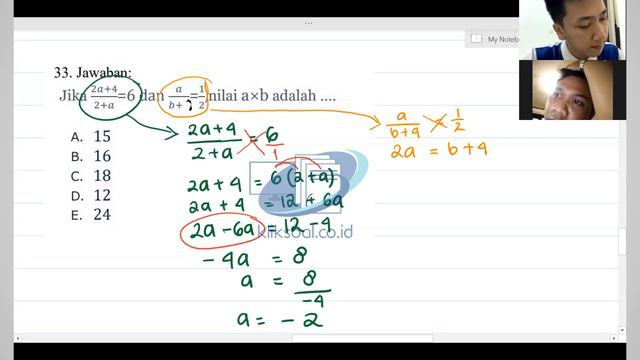 My Notebo
33. Jawaban:
Jika (2a+4)/(2+a)=6 dan a/(b+ =1/2, nilai a×b adalah ....
A. 15
B. 16
C. 18
D. 12
E. 24
(2a+4)/(2+a) = 6/1
2a+4 = 6(2+a)
2a+4 = 12+6a
2a-6a = 12-4
kliksoal.co.id
-4a = 8
a = 8/-4
a = -2
a/(b+4) = 1/2
2a = b+4